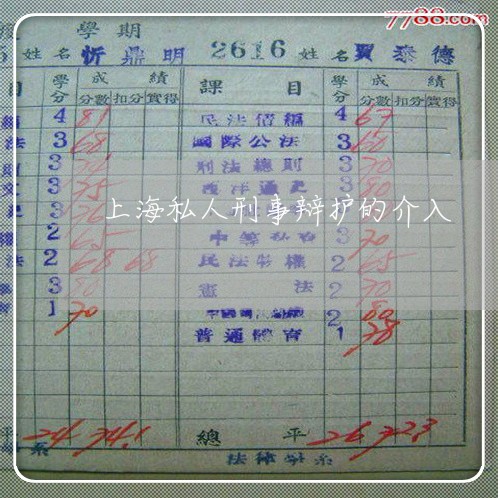 7788.com
學期
姓名 忻鼎明 2616 姓名 賈泰德
目 學分 成績 課目 學分 成績
分數 扣分 實得 分數 扣分 實得
4 81 民法債編 4 67
法 3 68 國際公法 3 60
3 刑法總則 3 70
3 75 西洋通史 3 80
3
上海私人刑事辩护的介入
2 65 3 70
法 2 68 68 民法物權 2 65
3 80 憲法 2 70
1 70 2 80
普通體育 1 78
平 24 74.1 總平 26 72.3
系 法律學系